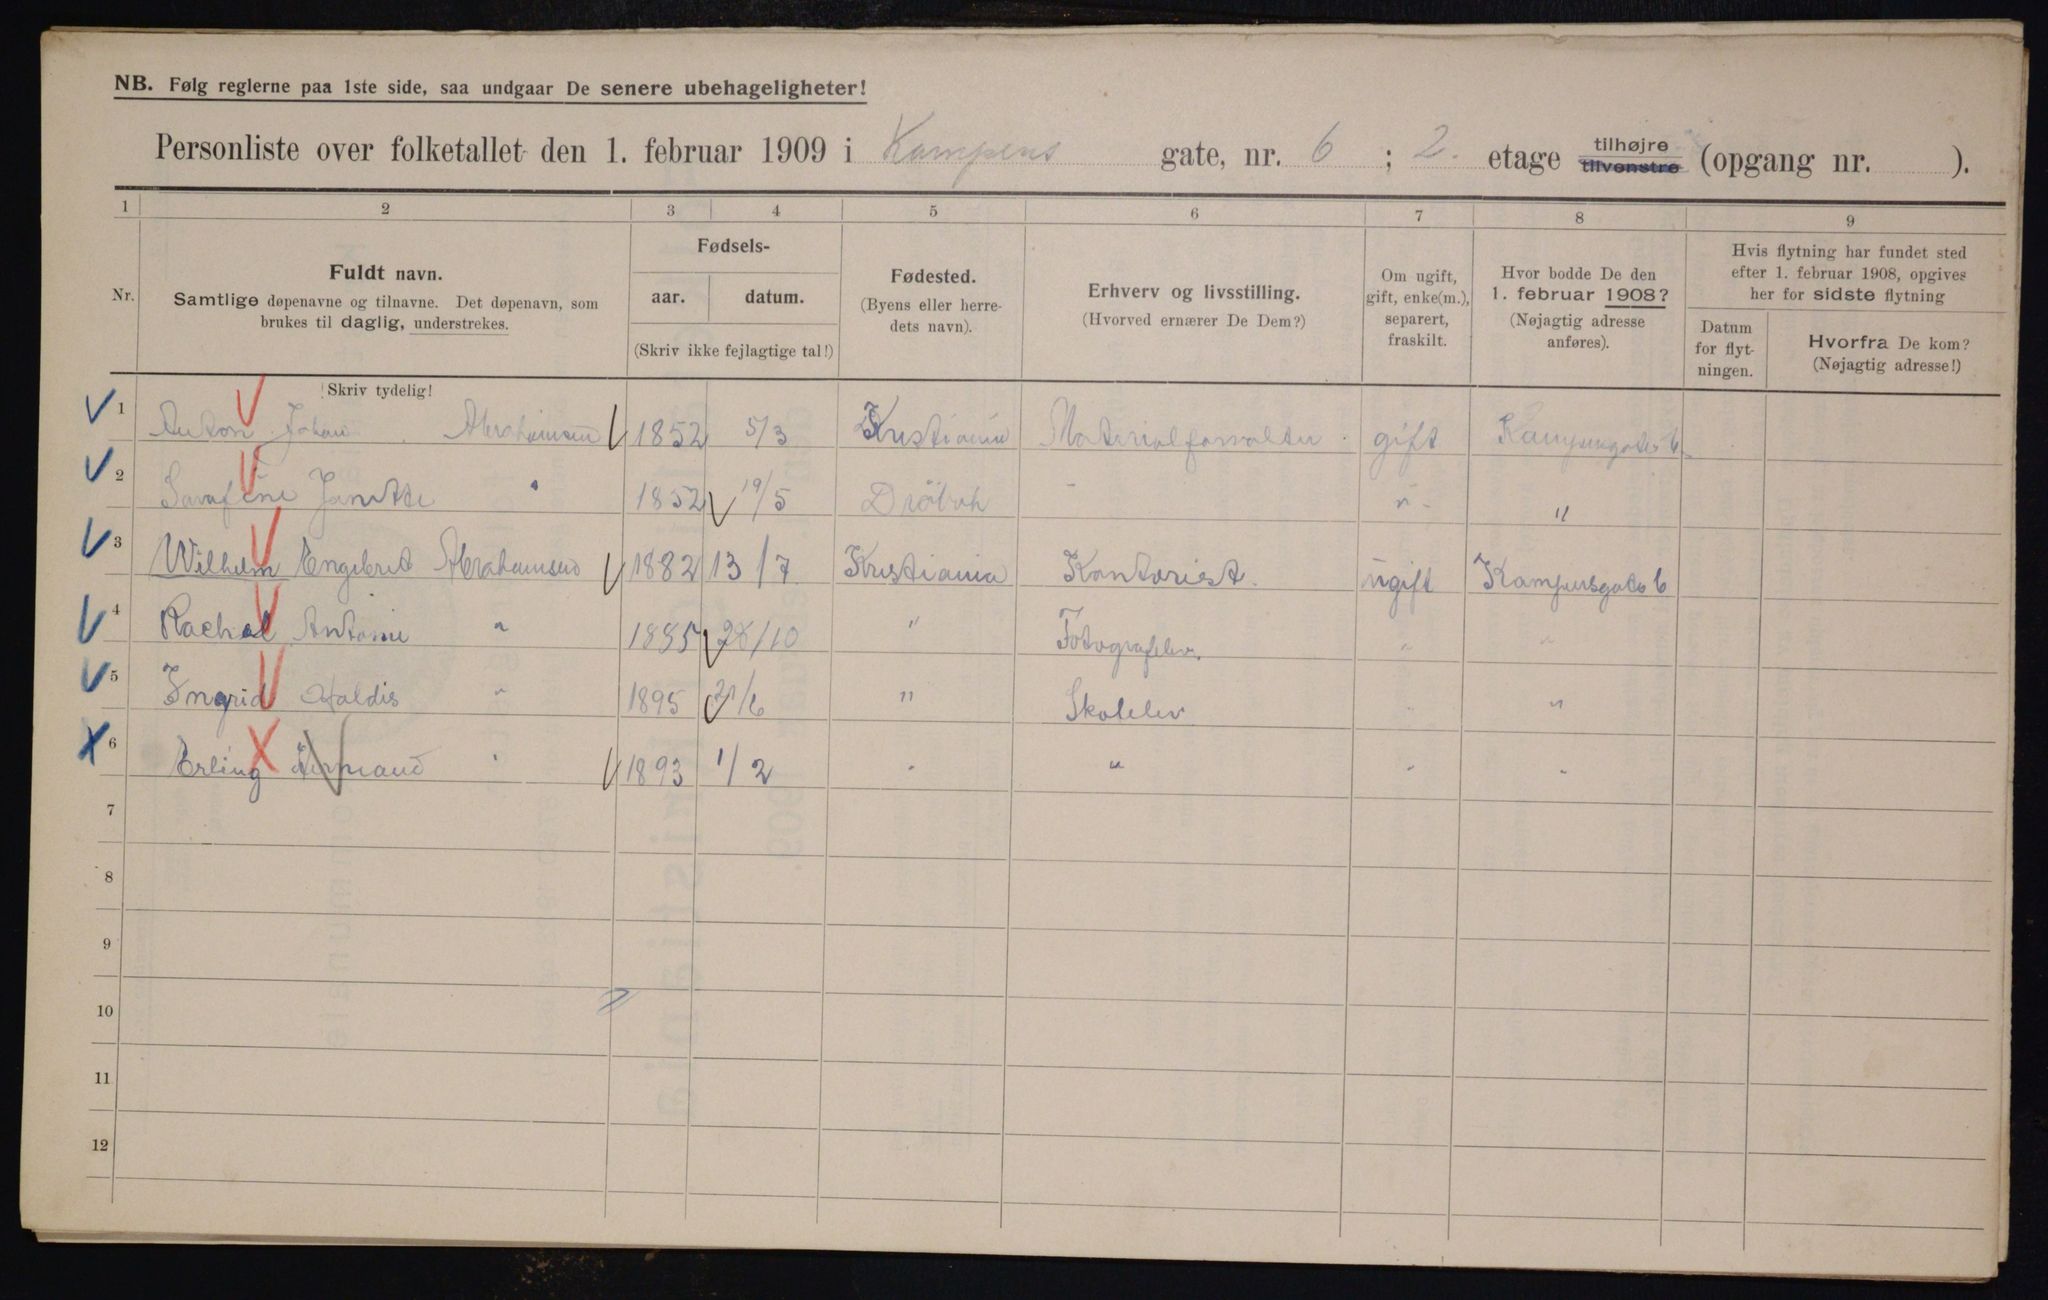 NB. Følg reglerne paa 1ste side, saa undgaar De senere ubehageligheter!
Personliste over folketallet den 1. februar 1909 i Kampens gate, nr. 6 ; 2. etage tilhøjre tilvenstre (opgang nr. ).
1 2 3 4 5 6 7 8 9
Nr.
Fuldt navn.
Samtlige døpenavne og tilnavne. Det døpenavn, som
brukes til daglig, understrekes.
Fødsels-
aar. datum.
(Skriv ikke fejlagtige tal!)
Fødested.
(Byens eller herre-
dets navn).
Erhverv og livsstilling.
(Hvorved ernærer De Dem?)
Om ugift,
gift, enke(m.),
separert,
fraskilt.
Hvor bodde De den
1. februar 1908?
(Nøjagtig adresse
anføres).
Hvis flytning har fundet sted
efter 1. februar 1908, opgives
her for sidste flytning
Datum
for flyt-
ningen.
Hvorfra De kom?
(Nøjagtig adresse!)
Skriv tydelig!
1 Anton Johan Abrahamsen 1852 5/3 Kristiania Materialforvalter gift Kampensgate 6
2 Janette " 1852 19/5 Drøbak - " "
3 Wilhelm Engebret Abrahamsen 1882 13/7 Kristiania Kontorist. ugift Kampensgate 6
4 Rachel Antonie " 1885 28/10 " Fotografelev. " "
5 Ingrid Haldis " 1895 21/6 " Skoleelev " "
6 Erling " 1893 1/2 " " " "
7
8
9
10
11
12